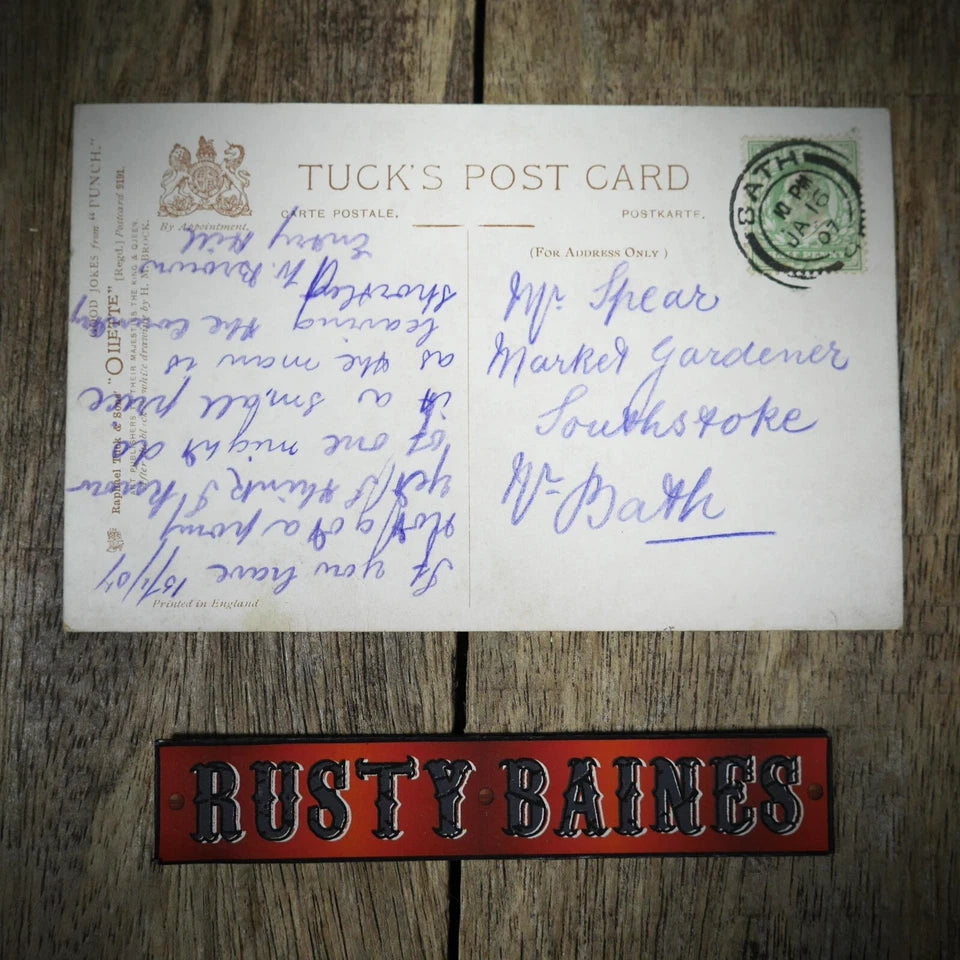 TUCK'S POST CARD
CARTE POSTALE.
POSTKARTE.
By Appointment.
(FOR ADDRESS ONLY)
Mr Spear
Market Gardener
Southstoke
Nr Bath
BATH
10 PM
JA 16
07
If you have 15/1/07
Not got a pony
yet I think I know
of one might do
it a small price
as the man is
leaving the country
shortley W. Brown
Entry Hill
GOOD JOKES from "PUNCH."
Raphael Tuck & Sons' "OILETTE" [Regd.] Postcard 9191.
ART PUBLISHERS TO THEIR MAJESTIES THE KING & QUEEN.
drawing by H. M. BROCK.
Printed in England
RUSTY BAINES